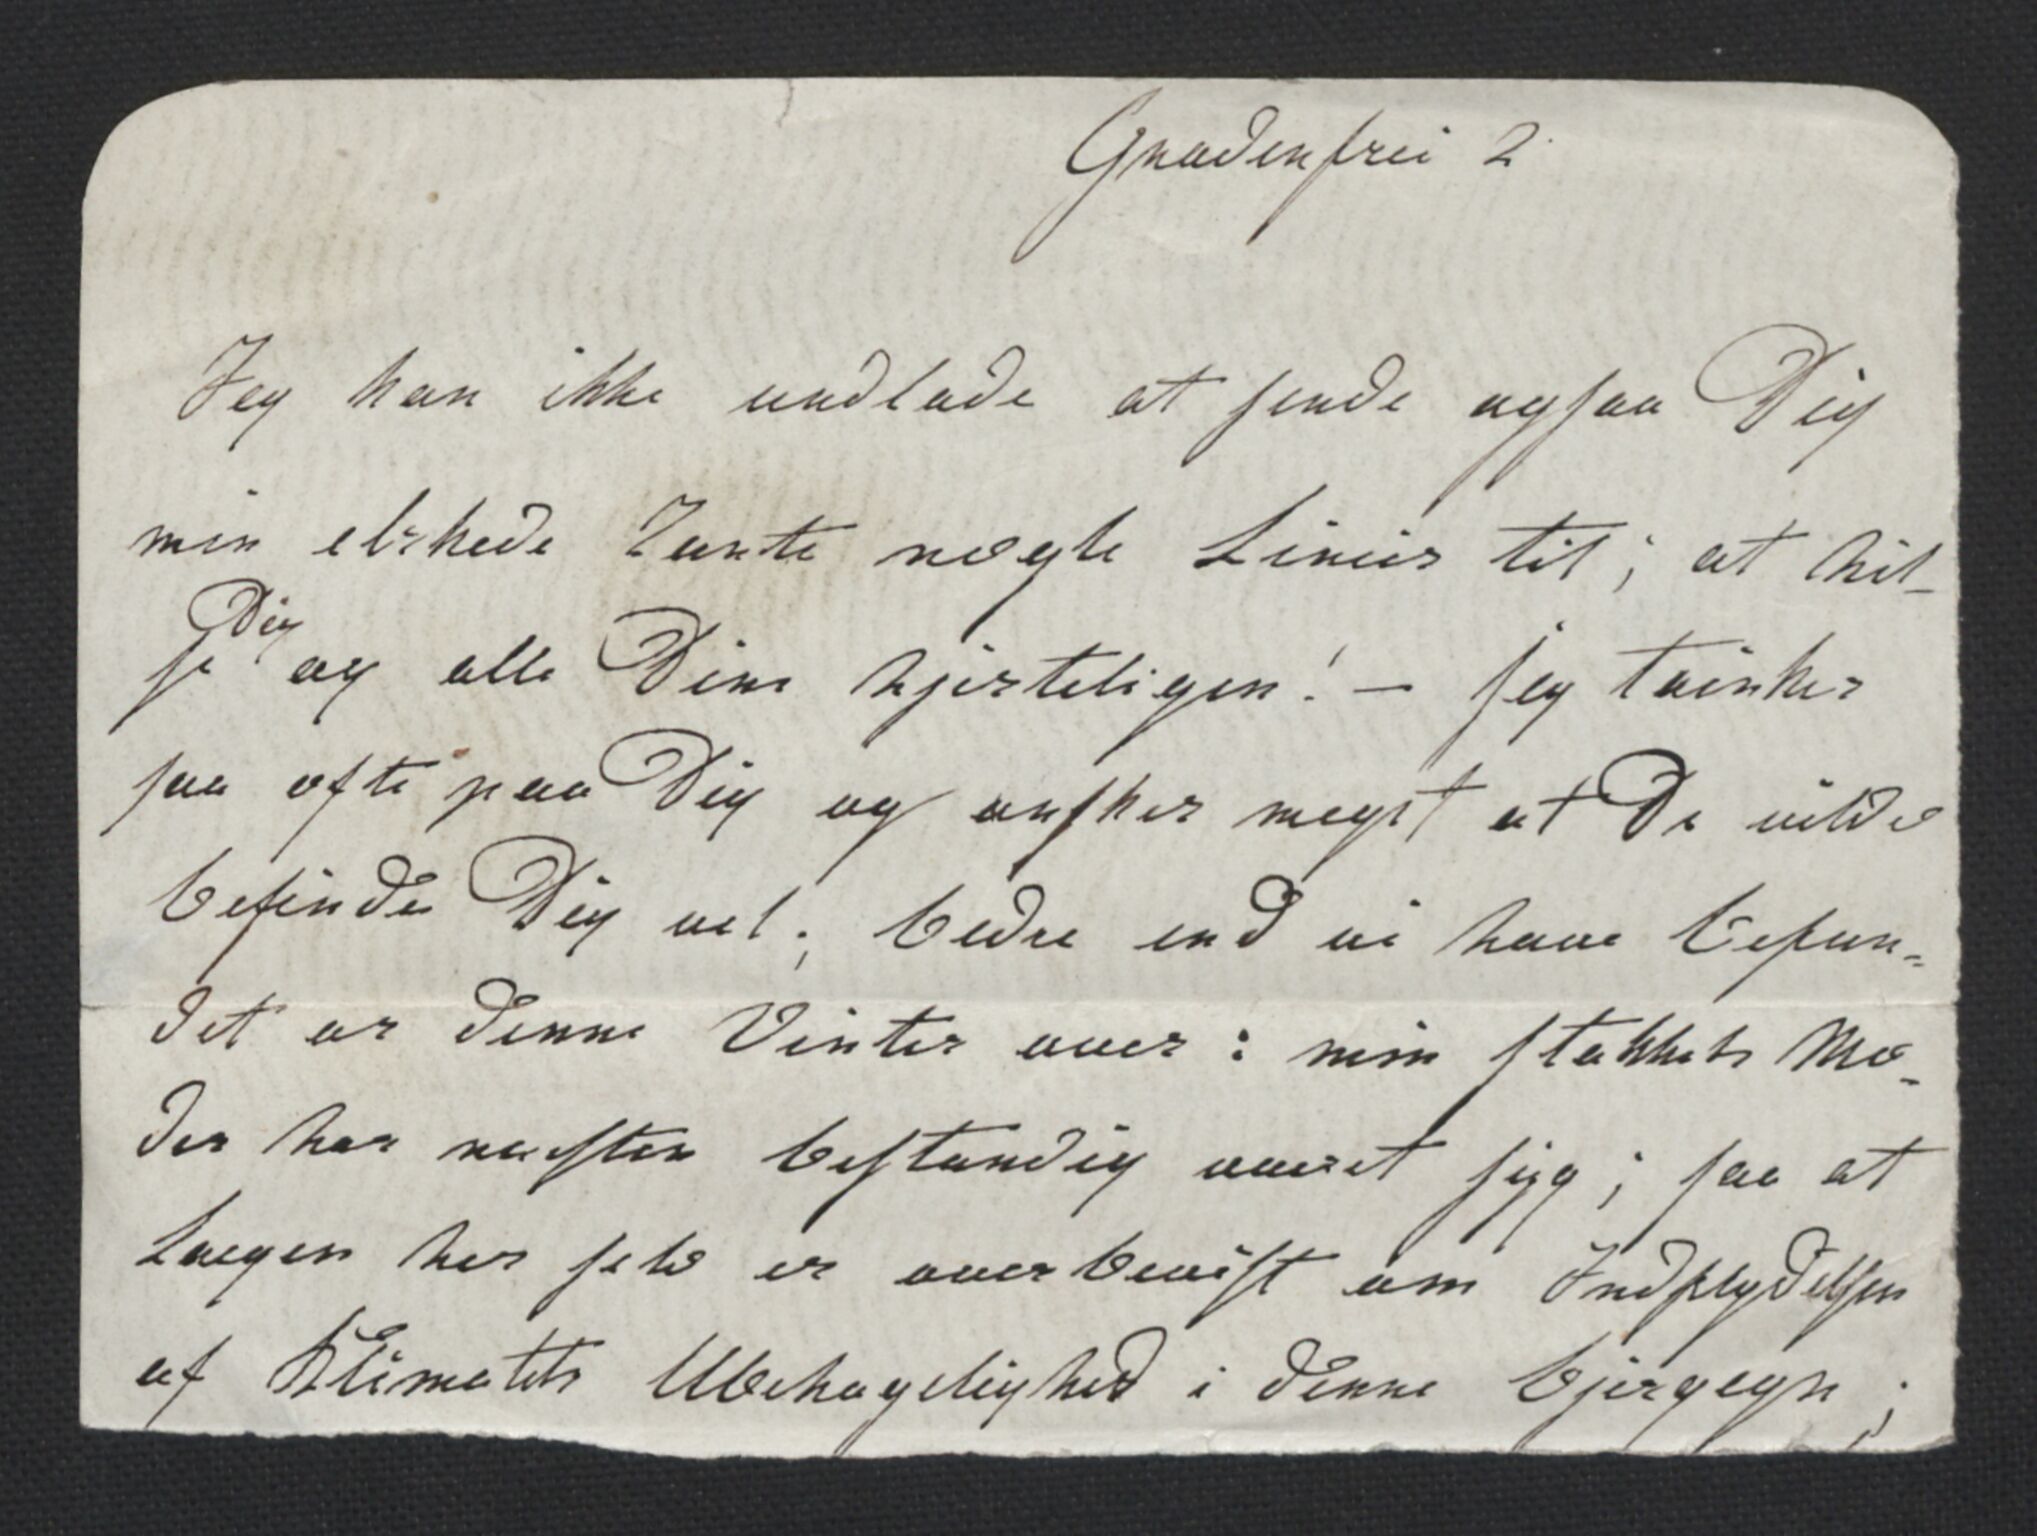 Gnadenfrei 2
Jeg kan ikke undlade at sende ogsaa Dig
min elskede Tante nogle Linier til; at hil-
se Dig og alle Dine hjerteligen! – Jeg tainker
saa ofte paa Dig og onsker megt at De vilde
befinde Dig vel; bedre end vi have befun-
det os denne Vinter over: min stakkels Mo-
der har naesten bestandig vaeret syg; saa at
Laegen her selv er overbevist om Indflydelsen
af Klimatets Ubehagelighed i denne bjergegn;